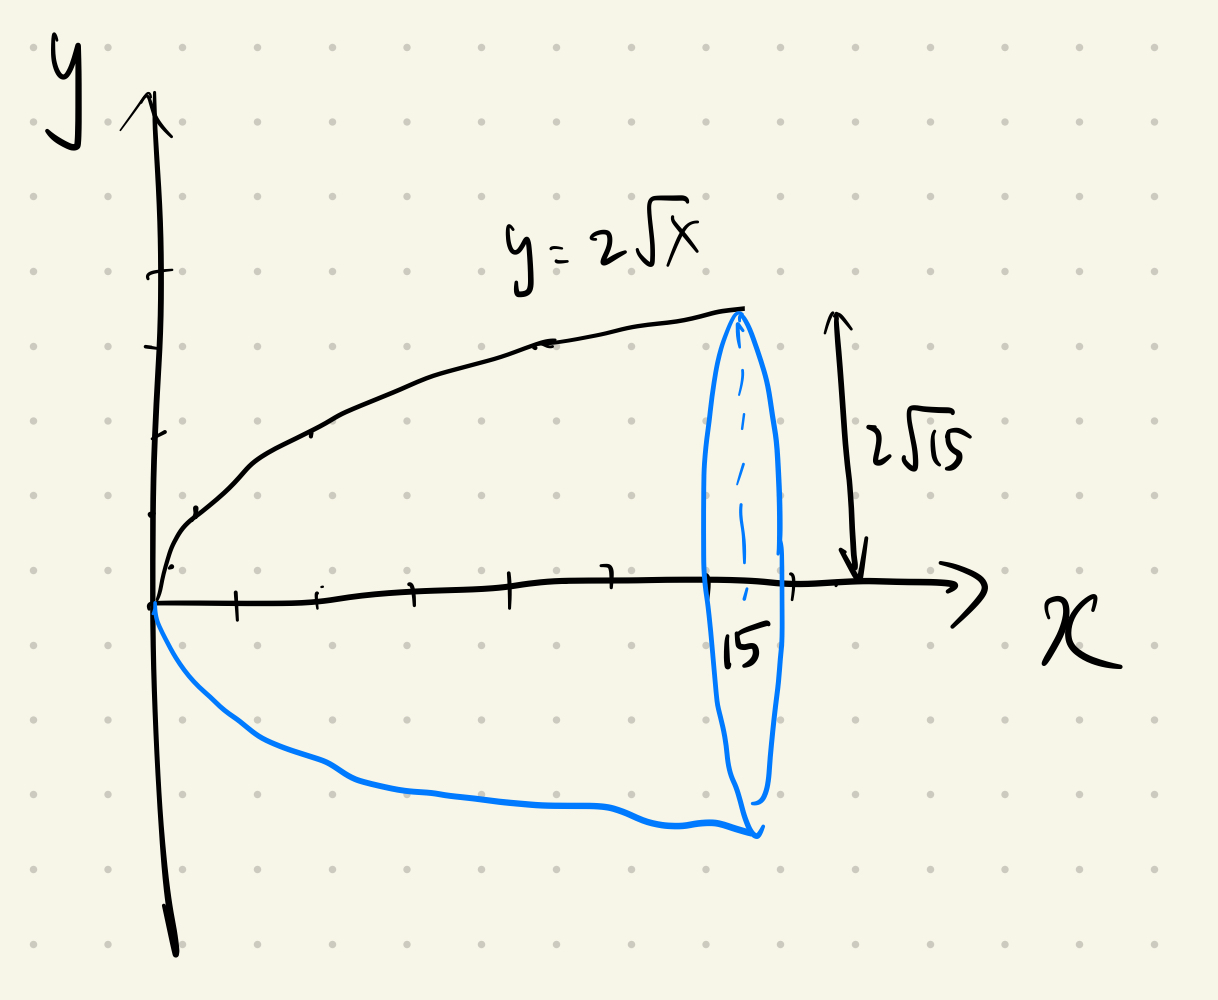 y
y = 2√x
2√15
15
x